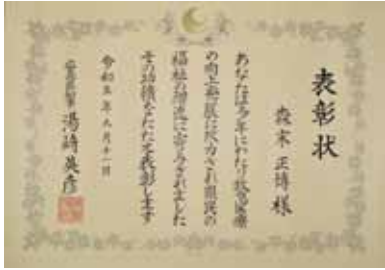 表彰状
森末正博様
あなたは多年にわたり救急医療
の向上発展に尽力され県民の
福祉の増進に寄与されました
その功績をたたえ表彰します
令和五年九月十一日
広島県知事 湯﨑英彦